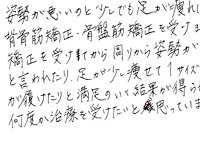 姿勢が悪いのと少しでも足が痩れ
背骨筋矯正・骨盤筋矯正を受けま
矯正を受けてから周りから姿勢が
と言われたり、足が少し痩せて1サイズ
が履けたりと満足のいく結果が得ら
何度か治療を受けたいと思っていま